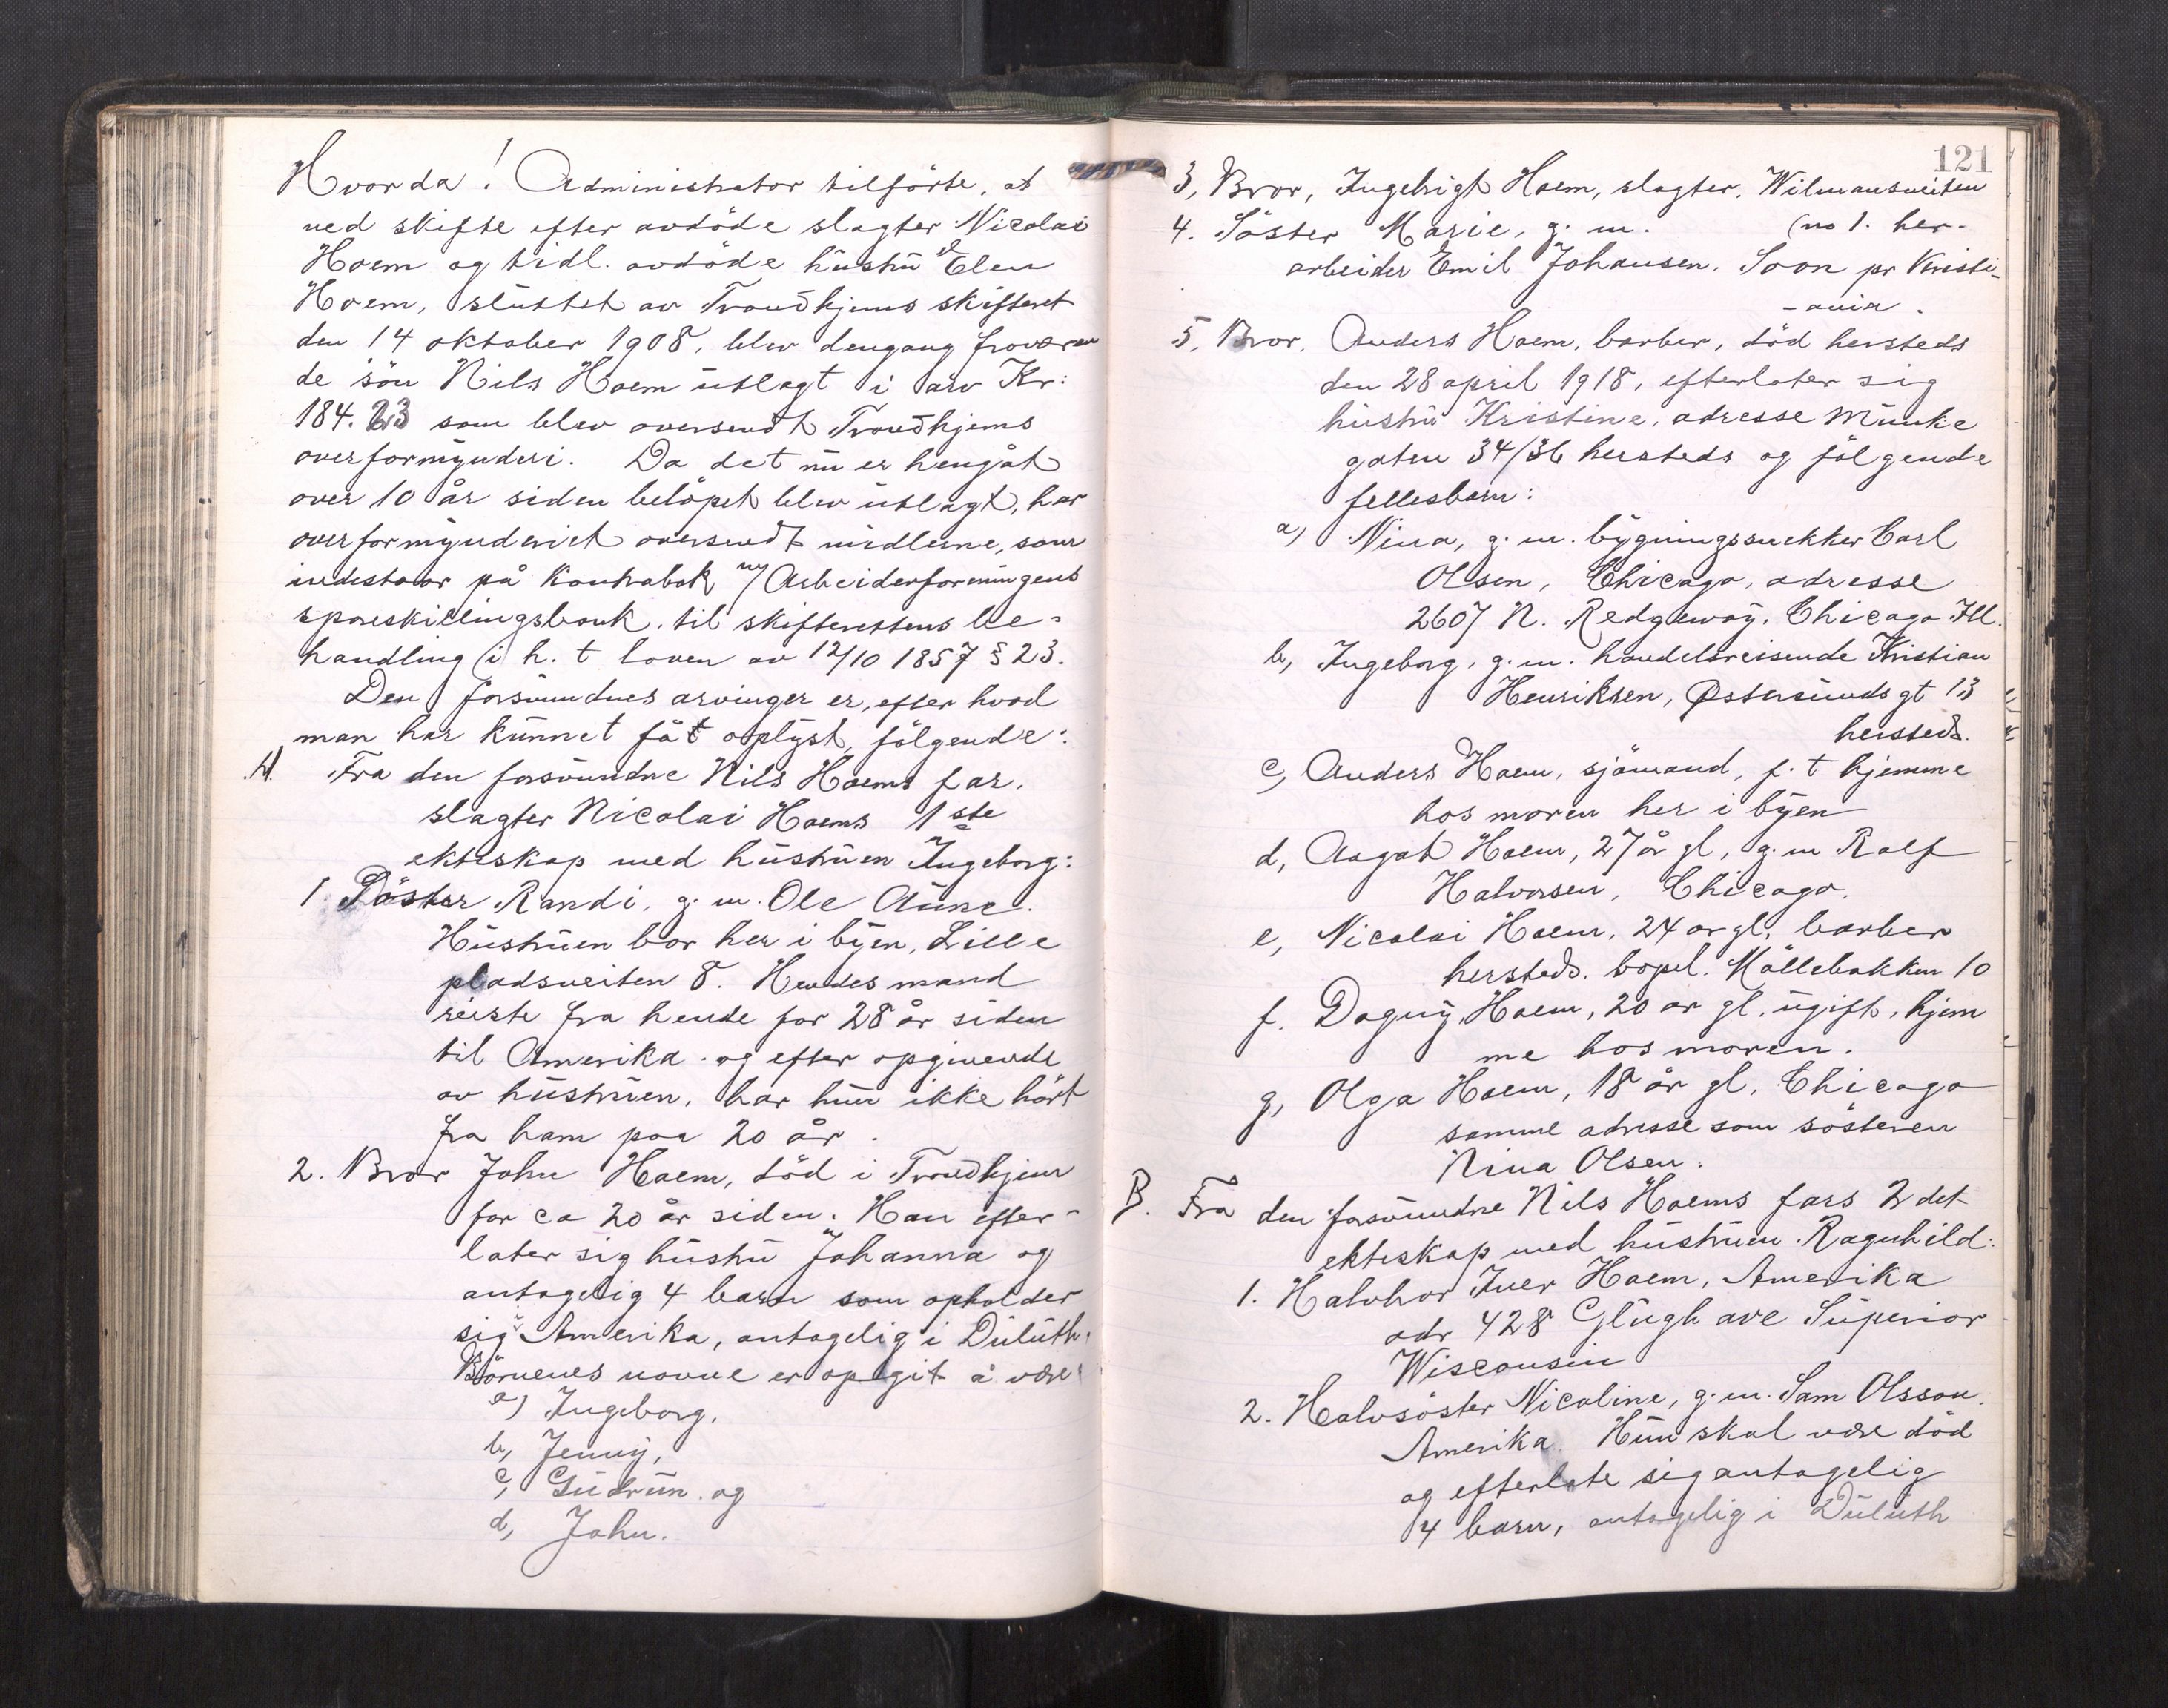 Hvorda! Administrator tilförte, at
ved skifte efter avdöde slagter Nicolai
Hoem og tidl. avdöde hustru Elen
Hoem, sluttet av Trondhjems skifteret
den 14 oktober 1908, blev dengang fraværen
de sön Nils Hoem utlagt i arv Kr:
184.23 som blev oversendt Trondhjems
overformynderi. Da det nu er hengåt
over 10 år siden belöpet blev utlagt, har
overformynderiet oversendt midlerne, som
indestaar på kontrabok m/ Arbeiderforeningens
spareskillingsbank, til skifterettens be-
handling i h. t loven av 12/10 1857 § 23.
Den forsvundnes arvinger er, efter hvad
man har kunnet fåt oplyst, fölgende:
A. Fra den forsvundne Nils Hoems far,
slagter Nicolai Hoems 1ste
ekteskap med hustruen Ingeborg:
1. Söster Randi, g. m. Ole Aune.
Hustruen bor her i byen, Lille
pladsveiten 8. Hendes mand
reiste fra hende for 28 år siden
til Amerika og efter opgivende
av hustruen, har hun ikke hört
fra ham paa 20 år.
2. Bror John Hoem, död i Trondhjem
for ca 20 år siden. Han efter-
later sig hustru Johanna og
antagelig 4 barn som opholder
sig i Amerika, antagelig i Duluth.
Börnenes navne er opgit å være:
a) Ingeborg,
b, Jenny,
c, Gudrun og
d, John.
121
3, Bror, Ingebrigt Hoem, slagter, Wilmansveiten
4. Söster Marie, g. m. (no 1. her.
arbeider Emil Johansen. Soon pr Kristi-
-ania.
5, Bror, Anders Hoem, barber, död hersteds
den 28 april 1918, efterlater sig
hustru Kristine, adresse Munke
gaten 34/36 hersteds og fölgende
fellesbarn:
a, Nina, g. m. bygningssnekker Carl
Olsen, Chicago, adresse
2607 N. Redgeway, Chicago Ill.
b, Ingeborg, g. m. handelsreisende Kristian
Henriksen, Østersunds gt 13
hersteds.
c, Anders Hoem, sjömand, f. t hjemme
hos moren her i byen
d, Aagot Hoem, 27 år gl, g. m Ralf
Halvorsen, Chicago.
e, Nicolai Hoem, 24 ar gl, barber
hersteds. bopel. Möllebakken 10
f. Dagny Hoem, 20 ar gl. ugift, hjem
me hos moren.
g, Olga Hoem, 18 år gl, Chicago
samme adresse som sösteren
Nina Olsen.
B. Fra den forsvundne Nils Hoems fars 2 det
ekteskap med hustruen Ragnhild:
1. Halvbror Iver Hoem, Amerika
adr 428 Glugh ave Superior
Wisconsin
2. Halvsöster Nicoline, g. m. Sam Olsson,
Amerika. Hun skal være död
og efterlate sig antagelig
4 barn, antagelig i Duluth